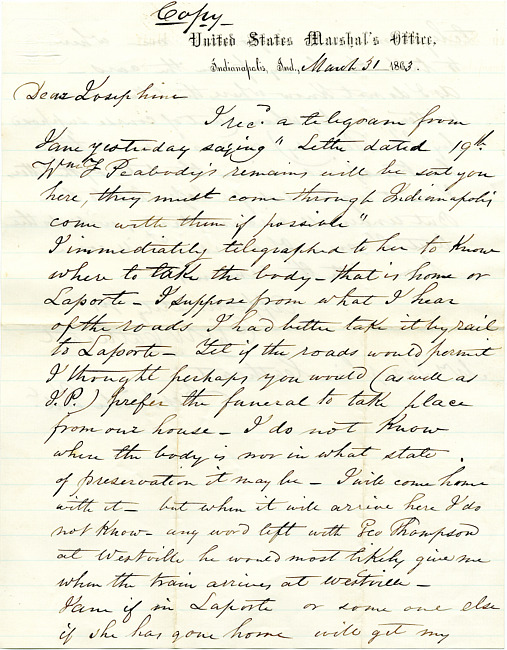 Copy
United States Marshal's Office,
Indianapolis, Ind., March 31 1863.
Dear Josephine
I rec.d a telegram from
Jane yesterday saying " Letter dated 19th
Wm F Peabody's remains will be sent you
here, they must come through Indianapolis
come with them if possible"
I immediately telegraphed to her to Know
where to take the body - that is home or
Laporte - I suppose from what I hear
of the roads I had better take it by rail
to Laporte - Yet if the roads would permit
I thought perhaps you would (as well as
J.P.) prefer the funeral to take place
from our house - I do not Know
where the body is nor in what state
of preservation it may be - I will come home
with it - but when it will arrive here I do
not Know - any word left with Geo Thompson
at Westville he would most likely give me
when the train arrives at Westville -
Jane if in Laporte or some one else
if she has gone home will get my